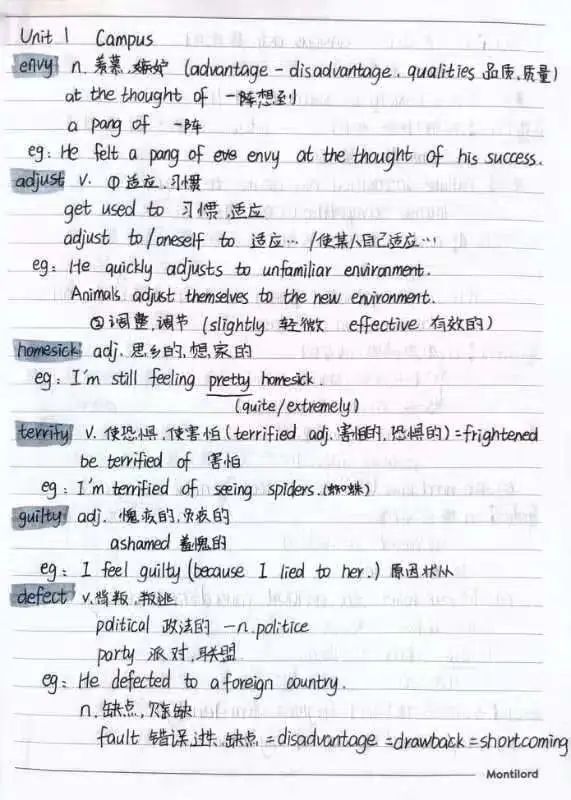 Unit 1 Campus
envy n. 羡慕, 嫉妒 (advantage - disadvantage. qualities 品质, 质量)
at the thought of 一阵想到
a pang of 一阵
eg: He felt a pang of envy at the thought of his success.
adjust v. ①适应, 习惯
get used to 习惯, 适应
adjust to/oneself to 适应… /使某人自己适应…
eg: He quickly adjusts to unfamiliar environment.
Animals adjust themselves to the new environment.
②调整, 调节 (slightly 轻微 effective 有效的)
homesick adj. 思乡的, 想家的
eg: I'm still feeling pretty homesick.
(quite/extremely)
terrify v. 使恐惧, 使害怕 (terrified adj. 害怕的, 恐惧的) = frightened
be terrified of 害怕
eg: I'm terrified of seeing spiders. (蜘蛛)
guilty adj. 愧疚的, 负疚的
ashamed 羞愧的
eg: I feel guilty (because I lied to her.) 原因状从
defect v. 背叛, 叛逃
political 政法的 - n. politice
party 派对, 联盟
eg: He defected to a foreign country.
n. 缺点, 欠缺
fault 错误, 过失, 缺点 = disadvantage = drawback = shortcoming
Montilord